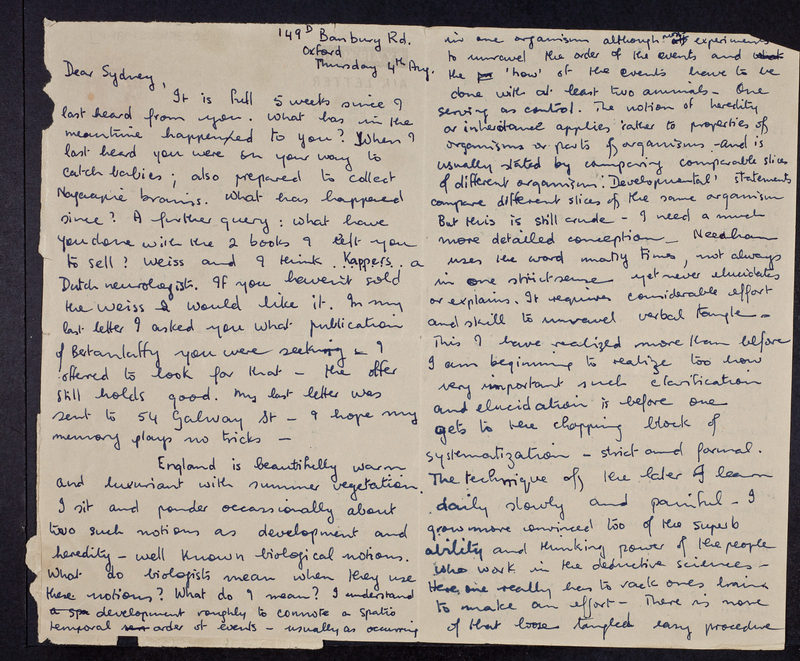 149D Banbury Rd.
Oxford
Thursday 4th Aug.
Dear Sydney,
It is full 5 weeks since I
last heard from you. What has in the
meantime happenxed to you? When I
last heard you were on your way to
catch babies; also prepared to collect
brains. What has happened
since? A further query: what have
you done with the 2 books I left you
to sell? Weiss and I think Kappers a
Dutch neurologist. If you haven't sold
the Weiss I would like it. In my
last letter I asked you what publication
of Bertanlaffy you were seeking – I
offered to look for that – the offer
still holds good. My last letter was
sent to 54 Galway St – I hope my
memory plays no tricks –
England is beautifully warm
and luxuriant with summer vegetation.
I sit and ponder occassionally about
two such notions as development and
heredity – well known biological notions.
What do biologists mean when they use
these notions? What do I mean? I understand
a spa development roughly to connote a spatio
temporal order of events – usually as occurring
in one organism although most experiments
to unravel the order of the events and what
the 'how' of the events have to be
done with at least two animals – One
serving as control. The notion of heredity
or inheritance applies rather to properties of
organisms or parts of organisms – and is
usually stated by comparing comparable slices
of different organisms. 'Developmental' statements
compare different slices of the same organism
But this is still crude – I need a much
more detailed conception – Needham
uses the word many times, not always
in one strict sense yet never elucidates
or explains. It requires considerable effort
and skill to unravel verbal tangle –
This I have realized more than before
I am beginning to realize too how
very important such clarification
and elucidation is before one
gets to the chopping block of
systematization – strict and formal.
The technique of the later I learn
daily slowly and painful – I
grow more convinced too of the superb
ability and thinking power of the people
who work in the deductive sciences –
Here one really has to rack ones brains
to make an effort – There is none
of that loose tangled easy procedure